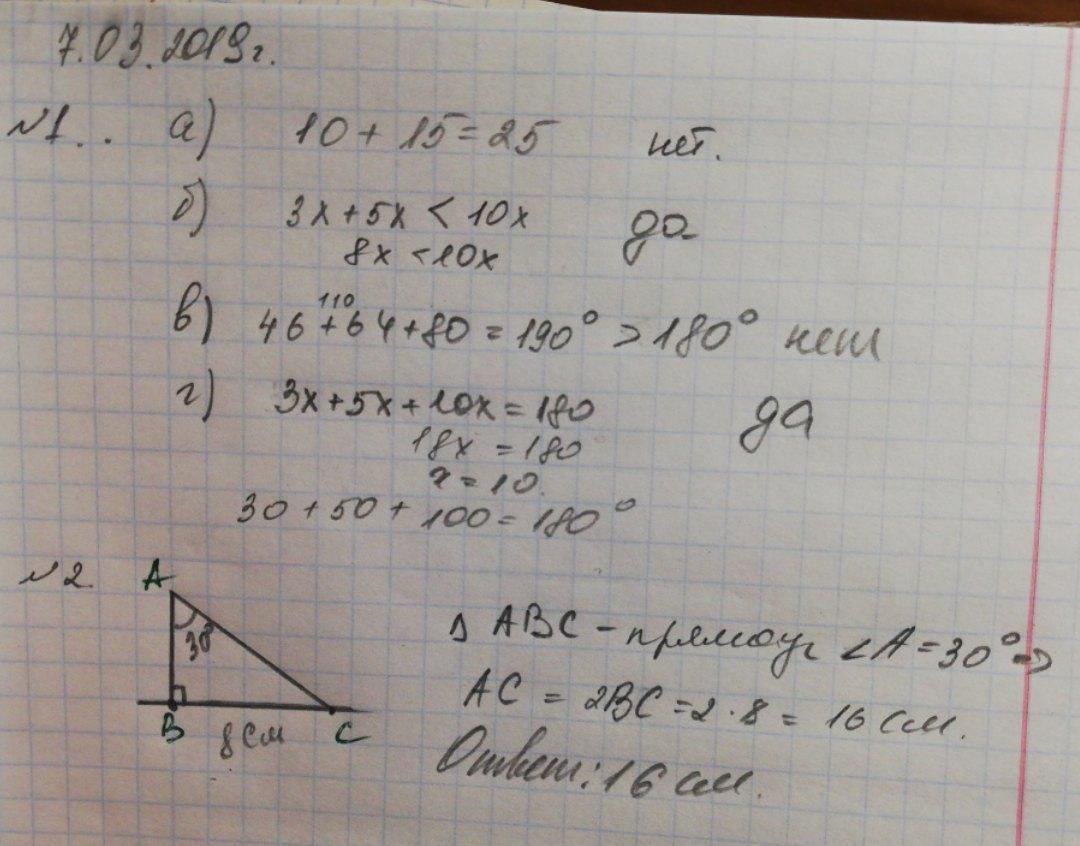 7.03.2019г.
№1.. а) 10 + 15 = 25 нет.
б) 3x + 5x < 10x да
8x < 10x
110
в) 46 + 64 + 80 = 190° > 180° нет
г) 3x + 5x + 10x = 180 да
18x = 180
x = 10.
30 + 50 + 100 = 180°
№2
A
30
B 8 см C
Δ ABC – прямоуг ∠A = 30° ⇒
AC = 2BC = 2 · 8 = 16 см.
Ответ: 16 см.